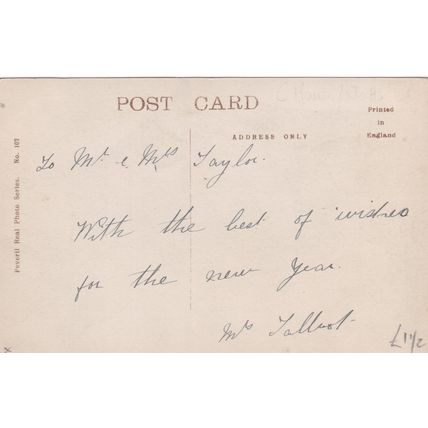 POST CARD
Printed
in
England
ADDRESS ONLY
Peveril Real Photo Series. No. 107
To Mr & Mrs Taylor.
With the best of wishes
for the new Year.
Mrs Talbot.
£1½
x